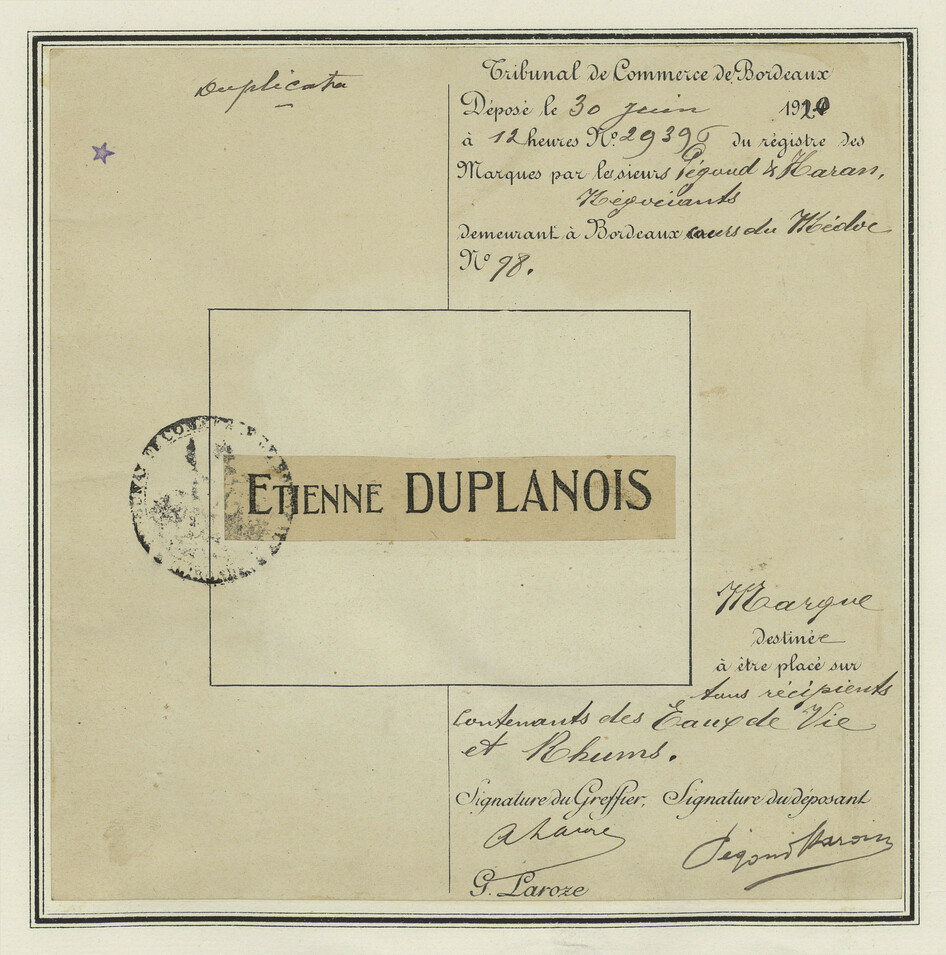 Duplicata
Tribunal de Commerce de Bordeaux
Déposé le 30 juin 1920
à 12 heures N° 29396 du régistre des
Marques par les sieurs Pégoud & Haran,
Négociants
demeurant à Bordeaux cours du Médoc
N° 98.
ETIENNE DUPLANOIS
Marque
destinée
à être placé sur
tous récipients
contenants des Eaux de Vie
et Rhums.
Signature du Greffier, Signature du déposant
Pégoud Haran
G. Laroze